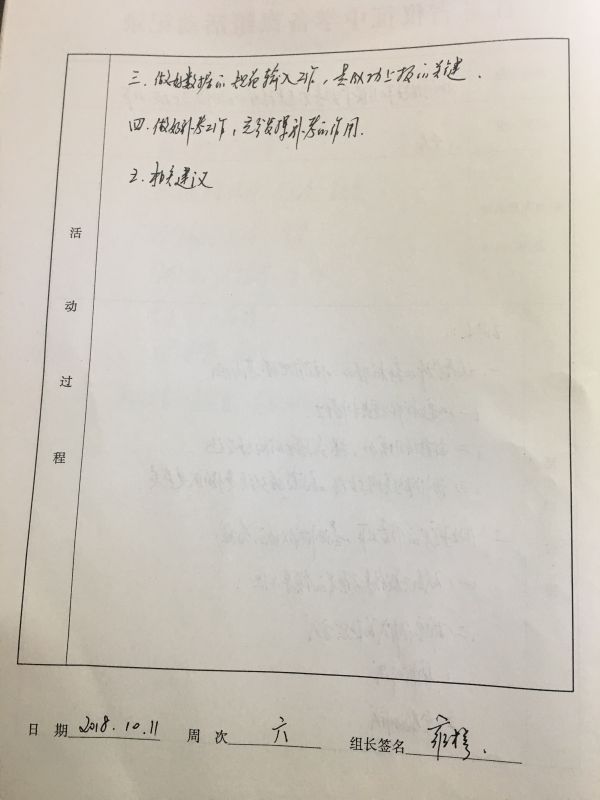 三.做好数据的规范输入工作,是成功上报的关键.
四.做好补考工作,充分发挥补考的作用.
五.相关建议
活动过程
日 期 2018.10.11 周 次 六 组长签名